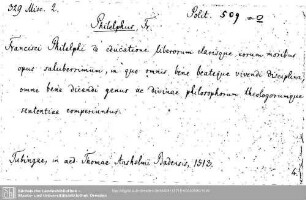 329 Misc. 2.
Polit. 509 = 2
Philelphus, Fr.
Francisci Philelphi de educatione liberorum clarisque eorum moribus
opus saluberrimum, in quo omnis bene beateque vivendi disciplina,
omne bene dicendi genus ac divinae philosophorum theologorumque
sententiae comperiuntur.
Tubingae, in aed. Thomae Anshelmi Badensis, 1513.
4.
Sächsische Landesbibliothek -
Staats- und Universitätsbibliothek Dresden